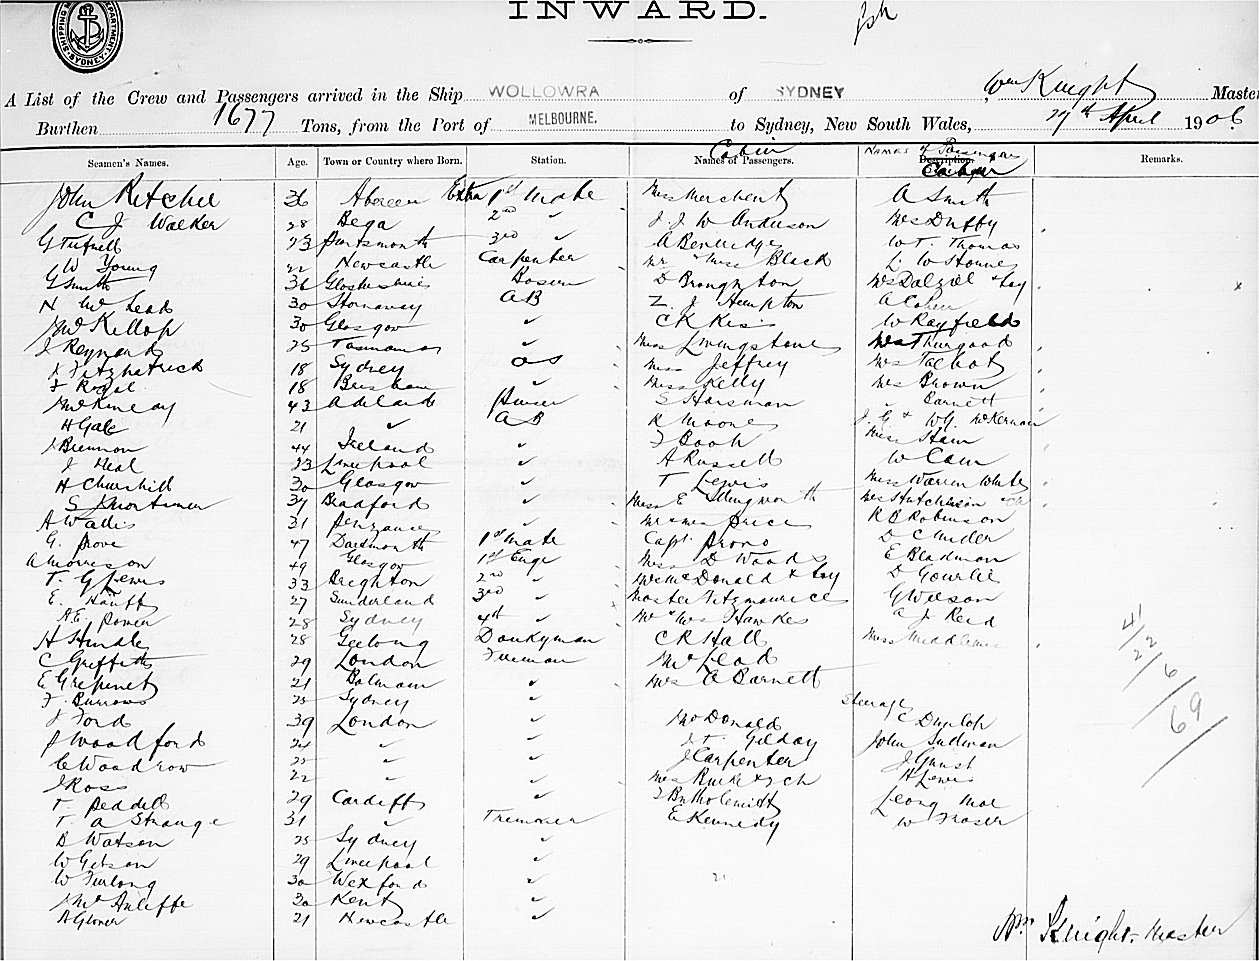 INWARD.
SHIPPING DEPARTMENT, SYDNEY
A List of the Crew and Passengers arrived in the Ship WOLLOWRA of SYDNEY Wm Knight Master
Burthen 1677 Tons, from the Port of MELBOURNE. to Sydney, New South Wales, 27th April 1906
Seamen's Names. Age. Town or Country where Born. Station. Names of Passengers. Description. Remarks.
Cabin Names of Passengers
John Ritchie 36 Extra 1st Mate Miss Merchent A Smith
C J Walker 28 Bega 2nd " J. J. W. Anderson Mrs Duffy
G Tufnell 23 Portsmouth 3rd " A Bentridge W T. Thomas
G W Young 22 Newcastle Carpenter Mr " Miss Black
G Smith 36 Bosun D Broughton Mrs Dalziel + Loy
N McLeod 30 AB Z. J Hampton A Cohen
McKillop 30 Glasgow " C K W Rayfield
J Reynards 25 " Miss Livingstone Mrs Thurgood
J Fitzpatrick 18 Sydney OS Miss Jeffrey Mrs Talbot
F Royal 18 Brisbane " Miss Kelly Mrs Brown
43 Adelaide S Horsman " Barnett
H Gale 21 " AB R Moone J. G + W G. McKernan
J Brennon 44 Ireland " J Book Miss
J Neal 23 Liverpool " A Russell W Cam
H Churchill 30 Glasgow " T Lewis Miss Warren White
S Mortimer 34 Bradford " Miss E Illingworth Mrs Hutchinson
A Wallis 31 Penzance " Mr + Mrs Price R B Robinson
G. Prove 47 Dartmouth 1st Mate Capt. D
A Morrison 49 Glasgow 1st Engr Miss D Woods E Bladman
T. G Lewis 33 Brighton 2nd " Mrs McDonald + Loy D Gourlie
E. 27 Sunderland 3rd " Master Fitzmaurice G Wilson
A E. Power 28 Sydney 4th " Mr + Mrs Hawkes A J Reid
H Hindle 28 Geelong Donkyman C R Hall Miss
C Griffiths 29 London Fireman McLeod
E 21 Balmain " Mrs A Barnett
F. Burrows 25 Sydney "
Steerage
J Ford 39 London " McDonald C Dunlop
J Woodford 24 " " J T. Gilday John
C Woodrow 25 " " J Carpenter J
J Ross 22 " " Mrs + 2 ch H Lewis
T Peddell 29 Cardiff " Leong Moe
T A Strange 31 " Trimmer E Kennedy W Fraser
D Watson 25 Sydney "
W Gibson 29 Liverpool "
W Furlong 30 Wexford " 21
J McAuliffe 30 Kent "
A Glover 21 Newcastle "
41
22
6
69
Wm Knight. Master